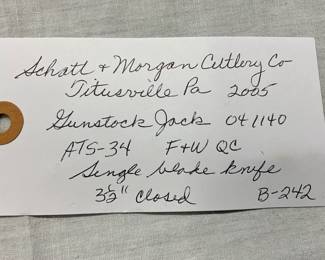 Schatt & Morgan Cutlery Co
Titusville Pa 2005
Gunstock Jack 041140
ATS-34 F&W QC
Single blade knife
3½" closed B-242